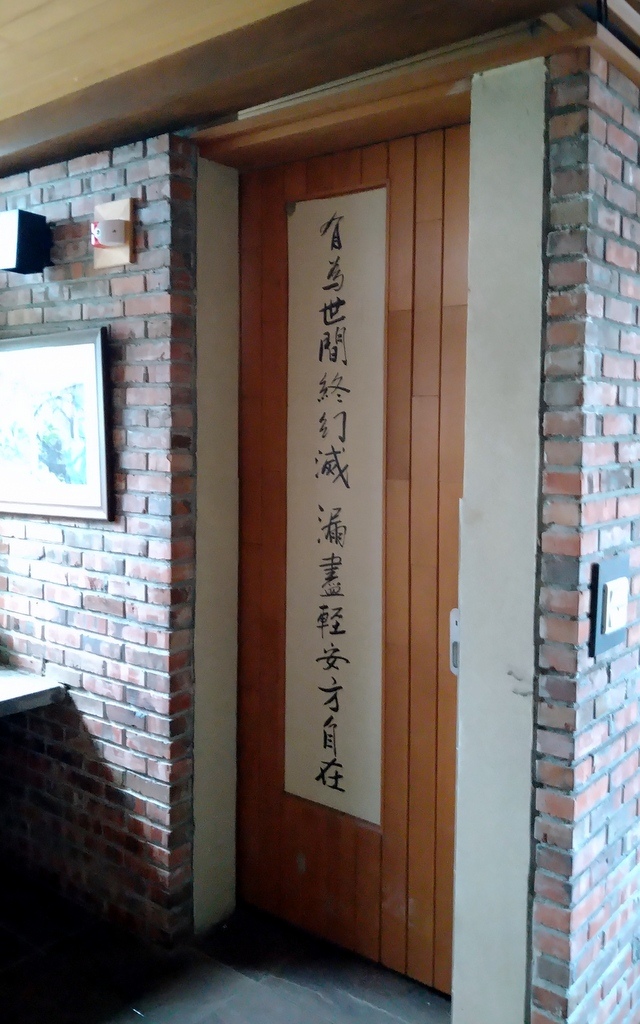 有為世間終幻滅 漏盡輕安方自在